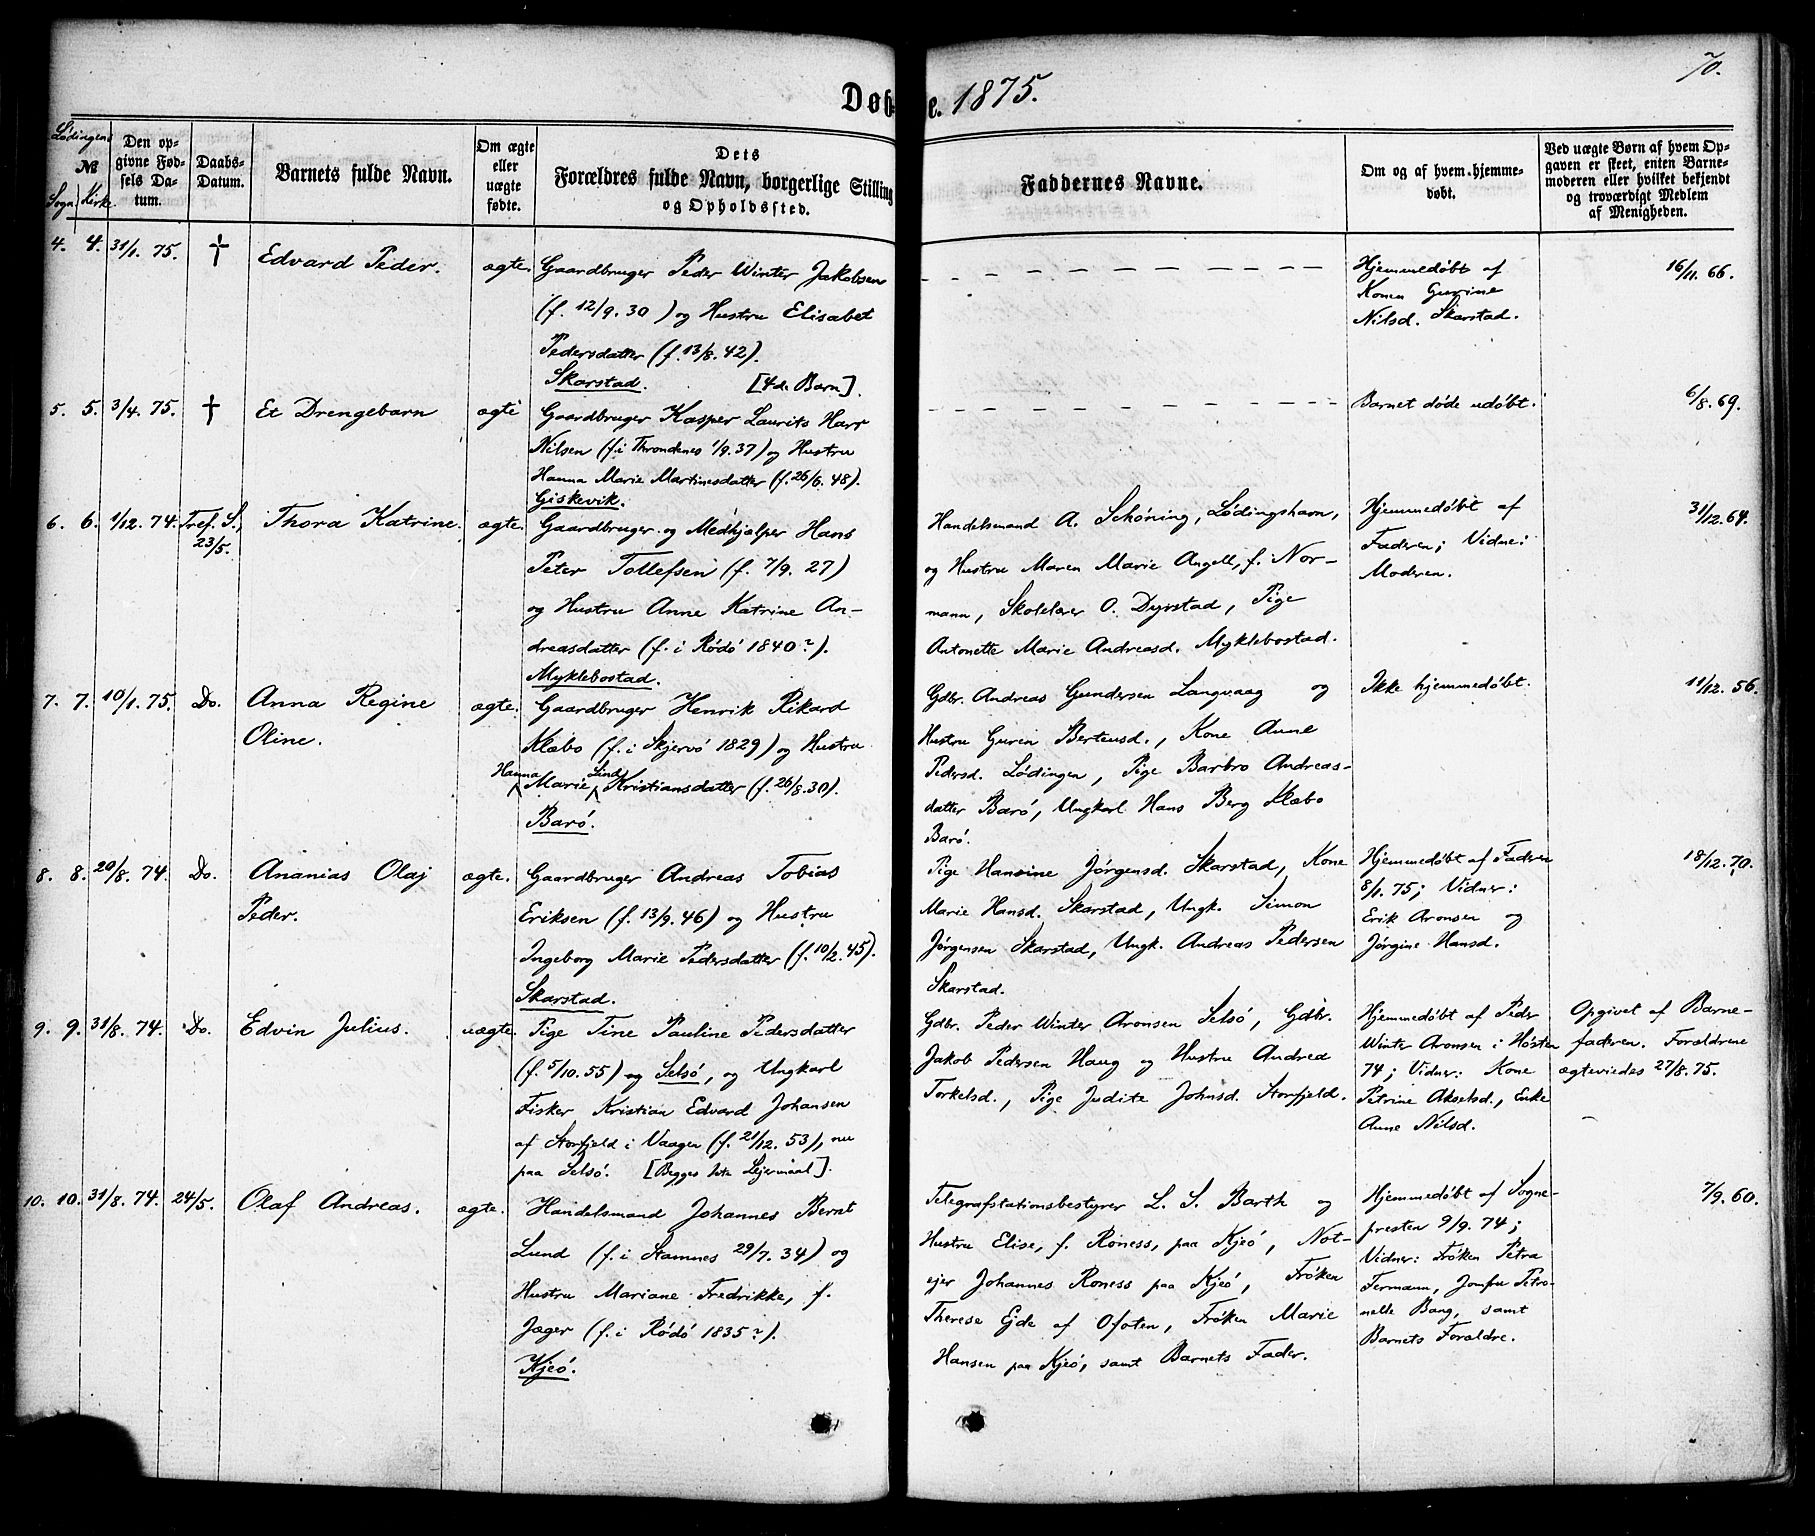 70.
Døbte. 1875.
Lødingens
№
Sogn Kirke.
Den op-
givne Fød-
sels Da-
tum.
Daabs-
Datum.
Barnets fulde Navn.
Om ægte
eller
uægte
fødte.
Dets
Forældres fulde Navn, borgerlige Stilling
og Opholdssted.
Faddernes Navne.
Om og af hvem hjemme-
døbt.
Ved uægte Børn af hvem Op-
gaven er skeet, enten Barne-
moderen eller hvilket bekjendt
og troværdigt Medlem
af Menigheden.
4. 4. 31/1. 75. † Edvard Peder. ægte.
Gaardbruger Peder Winter Jakobsen
(f. 12/9. 30) og Hustru Elisabet
Pedersdatter (f. 13/8. 42).
Skarstad. [4de Barn].
Hjemmedøbt af
Konen Gurine
Nilsd. Skarstad.
16/11. 66.
5. 5. 3/4. 75. † Et Drengebarn ægte
Gaardbruger Kasper Laurits Harr
Nilsen (f. i Throndenes 1/9. 37) og Hustru
Hanna Marie Martinesdatter (f. 26/6. 48).
Giskevik.
Barnet døde udøbt.
6/8. 69.
6. 6. 1/12. 74. Tref. S., Thora Katrine. ægte.
23/5.
Gaardbruger og Medhjælper Hans
Peter Tollefsen (f. 7/9. 27)
og Hustru Anne Katrine An-
dreasdatter (f. i Rødø 1840?).
Myklebostad.
Handelsmand A. Schøning, Lødingshavn,
og Hustru Maren Marie Angell, f. Nor-
mann, Skolelærer O. Dyrstad, Pige
Antonette Marie Andreasd. Myklebostad.
Hjemmedøbt af
Faderen; Vidne:
Moderen.
31/12. 64.
7. 7. 10/1. 75. Do. Anna Regine ægte.
Oline.
Gaardbruger Henrik Rikard
Klæbo (f. i Skjervø 1829) og Hustru
Hanna Marie Lind Kristiansdatter (f. 26/8. 30).
Barø.
Gdbr. Andreas Gundersen Langvaag og
Hustru Guren Berteusd., Kone Anne
Pedersd. Lødingen, Pige Barbro Andreas-
datter Barø, Ungkarl Hans Berg Klæbo
Barø.
Ikke hjemmedøbt.
11/12. 56.
8. 8. 20/8. 74. Do. Ananias Olaj ægte.
Peder.
Gaardbruger Andreas Tobias
Eriksen (f. 13/9. 46) og Hustru
Ingeborg Marie Pedersdatter (f. 10/2. 45).
Skarstad.
Pige Hansine Jørgensd. Skarstad, Kone
Marie Hansd. Skarstad, Ungk. Simon
Jørgensen Skarstad, Ungk. Andreas Pedersen
Skarstad.
Hjemmedøbt af Faderen
8/1. 75; Vidner:
Erik Aronsen og
Jørgine Hansd.
18/12. 70.
9. 9. 31/8. 74. Do. Edvin Julius. uægte.
Pige Tine Pauline Pedersdatter
(f. 5/10. 55) og Selsø, og Ungkarl
Fisker Kristian Edvard Johansen
af Storfjeld i Vaagen (f. 21/12. 53), nu
paa Selsø. [Begges 1ste Lejermaal].
Gdbr. Peder Winter Aronsen Selsø, Gdbr.
Jakob Pedersen Haug og Hustru Andrea
Torkelsd., Pige Judite Johnsd. Storfjeld.
Hjemmedøbt af Peder
Winter Aronsen i Høsten
74; Vidner: Kone
Petrine Akselsd., Enke
Anne Nilsd.
Opgivet af Barne-
faderen. Forældrene
ægteviedes 27/8. 75.
10. 10. 31/8. 74. 24/5. Olaf Andreas. ægte.
Handelsmand Johannes Bernt
Lund (f. i Stamnes 29/7. 34) og
Hustru Mariane Fredrikke, f.
Jæger (f. i Rødø 1835?).
Kjeø.
Telegrafstationsbestyrer L. S. Barth og
Hustru Elise, f. Røness, paa Kjeø, Not-
ejer Johannes Røness paa Kjeø, Frøken
Therese Ejde af Ofoten, Frøken Marie
Hansen paa Kjeø, samt Barnets Fader.
Hjemmedøbt af Sogne-
presten 9/9. 74;
Vidner: Frøken Petra
Termann, Jomfru Petro-
nelle Bang, samt
Barnets Forældre.
7/9. 60.